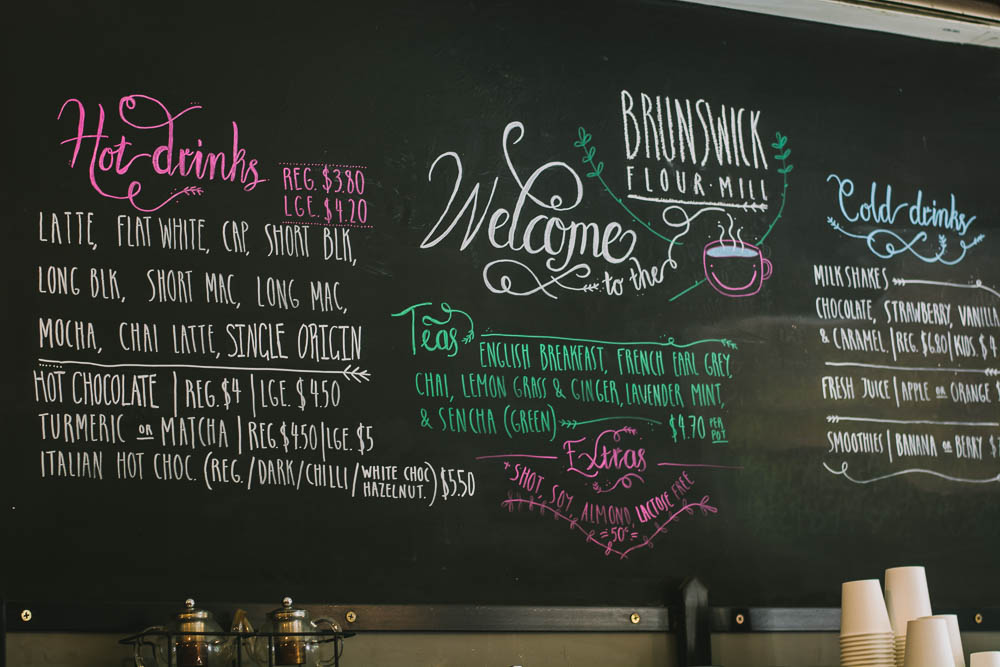 Hot drinks
REG. $3.80
LGE. $4.20
LATTE, FLAT WHITE, CAP, SHORT BLK,
LONG BLK, SHORT MAC, LONG MAC,
MOCHA, CHAI LATTE, SINGLE ORIGIN
HOT CHOCOLATE | REG. $4 | LGE. $4.50
TURMERIC OR MATCHA | REG. $4.50 | LGE. $5
ITALIAN HOT CHOC. (REG. /DARK/CHILLI/WHITE CHOC HAZELNUT.) $5.50
Welcome
to the
BRUNSWICK
FLOUR · MILL
Teas
ENGLISH BREAKFAST, FRENCH EARL GREY,
CHAI, LEMON GRASS & GINGER, LAVENDER MINT,
& SENCHA (GREEN)
$4.70 PER POT
Extras
+ SHOT, SOY, ALMOND, LACTOSE FREE
= 50c =
Cold drinks
MILKSHAKES
CHOCOLATE, STRAWBERRY, VANILL
& CARAMEL. | REG. $6.80 | KIDS. $4
FRESH JUICE | APPLE OR ORANGE
SMOOTHIES | BANANA OR BERRY $